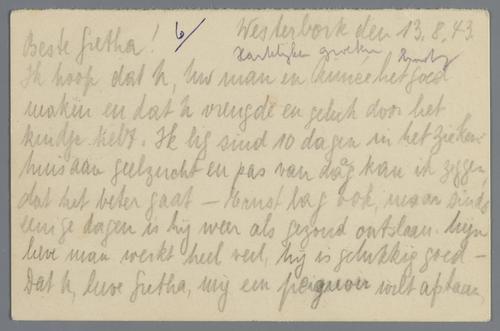 Westerbork den 13.8.43.
Beste Gretha! 6/
Hartelijke groeten Ernst
Ik hoop dat U, Uw man en het goed
maken en dat U vreugde en geluk door het
kindje hebt. Ik lig sind 10 dagen in het zieken-
huis aan geelzucht en pas van dåg kan ik zeggen,
dat het beter gaat — Ernst lag ook, maar sinds
eenige dagen is hij weer als gezond ontslaan. Mijn
lieve man werkt heel veel, hij is gelukkig goed —
Dat U, lieve Gretha, mij een peignoir wilt afstaan,